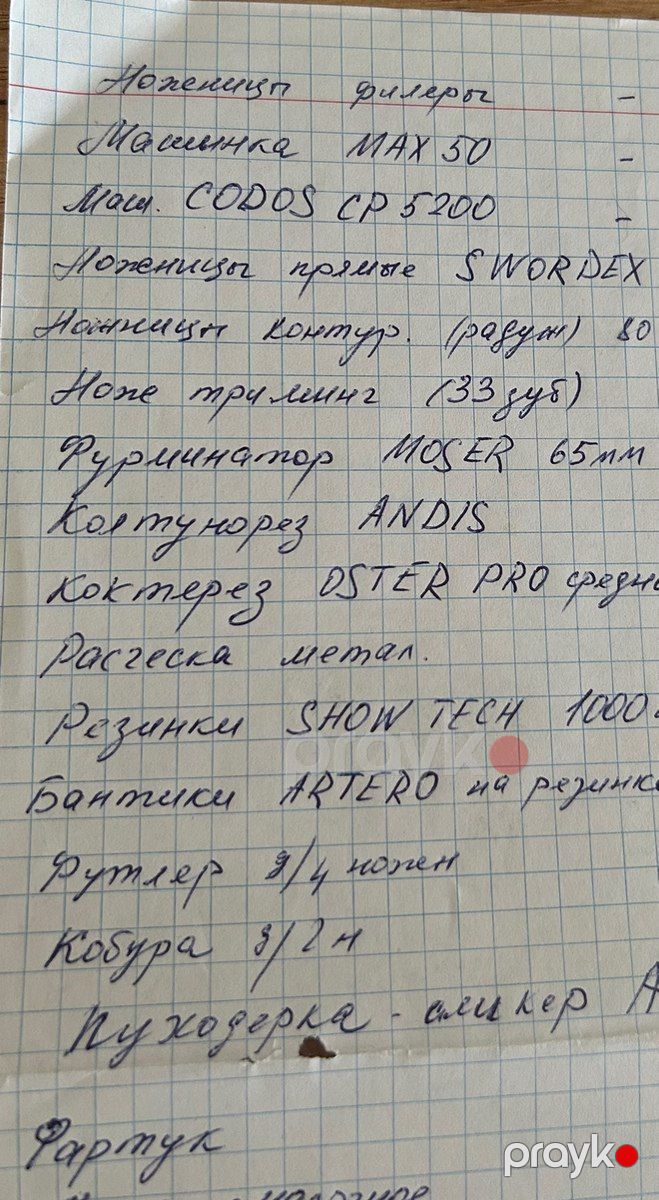 Ноженицы филеры -
Машинка MAX 50 -
Маш. CODOS CP 5200 -
Ноженицы прямые SWORDEX
Ножницы контур. (радуж) 80
Ноже тримминг (33 зуб)
Фурминатор MOSER 65мм
Колтунорез ANDIS
Коктерез OSTER PRO средн
Расческа метал.
Резинки SHOW TECH 1000
Бантики ARTERO на резинк
Футляр д/4 ножен
Кобура д/2 н
Пуходерка - сликер A
Фартук
prayko